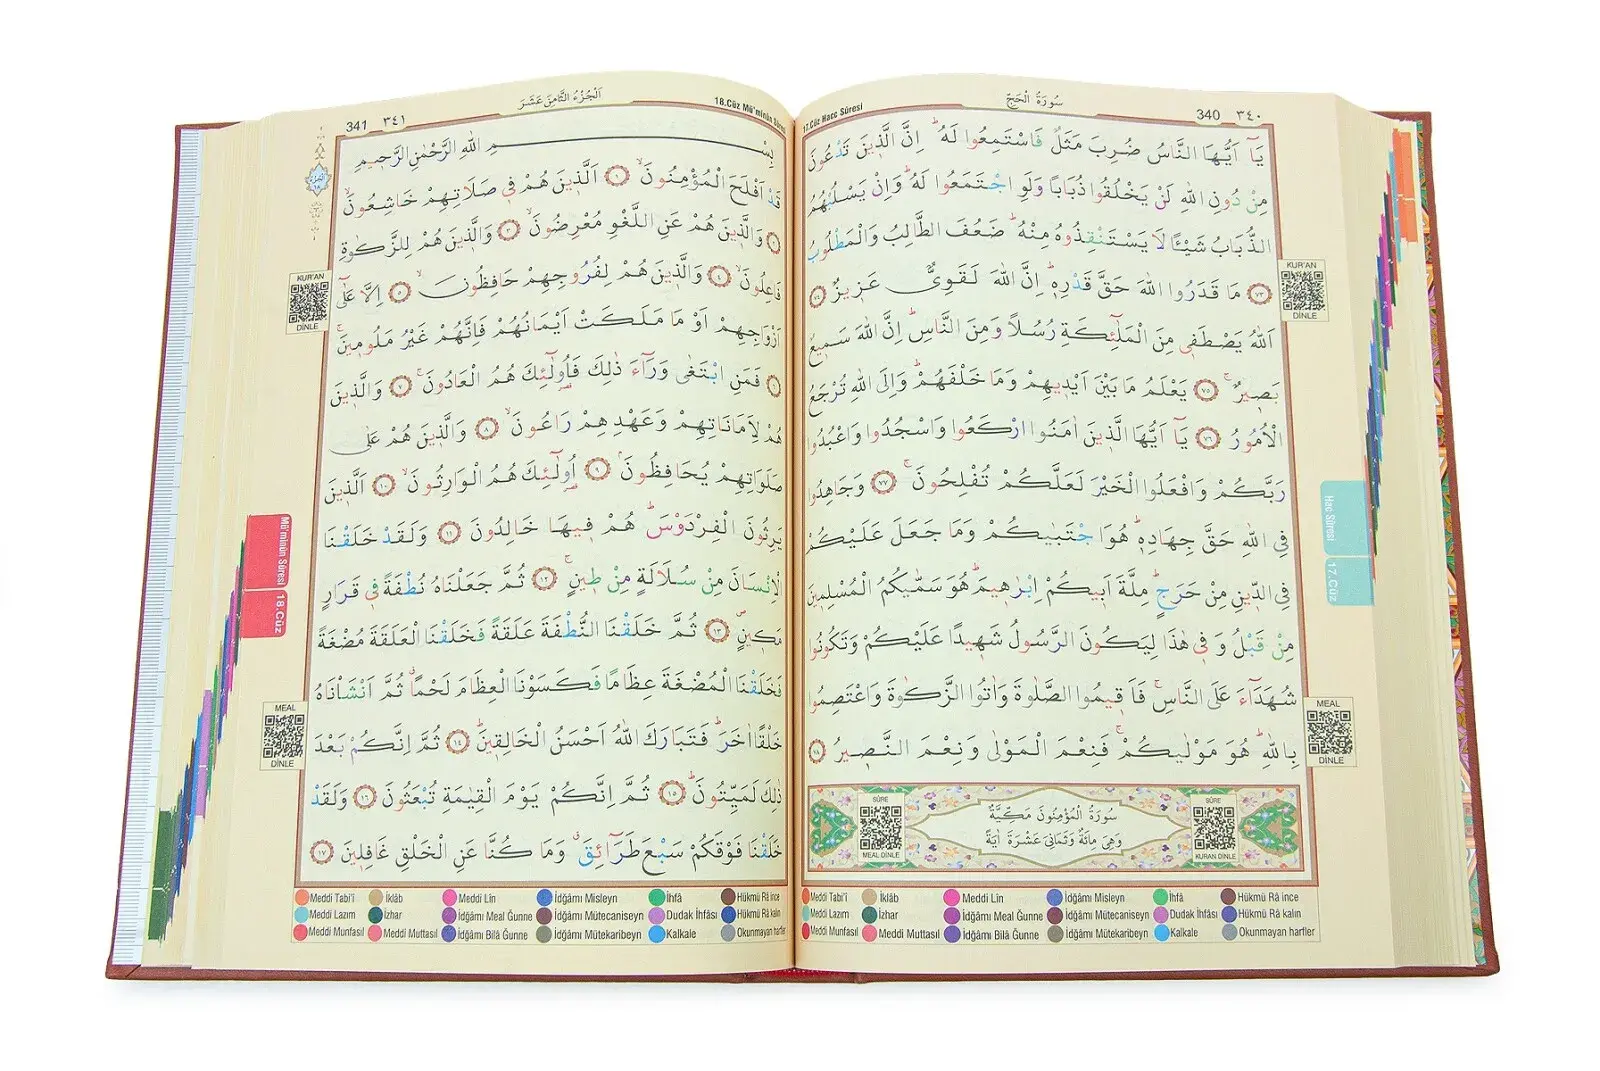 سُورَةُ الْحَجِّ
17.Cüz Hacc Sûresi
340 ٣٤٠
يَٓا اَيُّهَا النَّاسُ ضُرِبَ مَثَلٌ فَاسْتَمِعُوا لَهُ اِنَّ الَّذ۪ينَ تَدْعُونَ
مِنْ دُونِ اللّٰهِ لَنْ يَخْلُقُوا ذُبَابًا وَلَوِ اجْتَمَعُوا لَهُ وَاِنْ يَسْلُبْهُمُ
الذُّبَابُ شَيْـًٔا لَا يَسْتَنْقِذُوهُ مِنْهُ ضَعُفَ الطَّالِبُ وَالْمَطْلُوبُ
٧٣ مَا قَدَرُوا اللّٰهَ حَقَّ قَدْرِه۪ اِنَّ اللّٰهَ لَقَوِيٌّ عَز۪يزٌ ٧٤
اَللّٰهُ يَصْطَف۪ي مِنَ الْمَلٰٓئِكَةِ رُسُلًا وَمِنَ النَّاسِ اِنَّ اللّٰهَ سَم۪يعٌ
بَص۪يرٌ ٧٥ يَعْلَمُ مَا بَيْنَ اَيْد۪يهِمْ وَمَا خَلْفَهُمْ وَاِلَى اللّٰهِ تُرْجَعُ
الْاُمُورُ ٧٦ يَٓا اَيُّهَا الَّذ۪ينَ اٰمَنُوا ارْكَعُوا وَاسْجُدُوا وَاعْبُدُوا
رَبَّكُمْ وَافْعَلُوا الْخَيْرَ لَعَلَّكُمْ تُفْلِحُونَ ٧٧ وَجَاهِدُوا
فِي اللّٰهِ حَقَّ جِهَادِه۪ هُوَ اجْتَبٰيكُمْ وَمَا جَعَلَ عَلَيْكُمْ
فِي الدّ۪ينِ مِنْ حَرَجٍ مِلَّةَ اَب۪يكُمْ اِبْرٰه۪يمَ هُوَ سَمّٰيكُمُ الْمُسْلِم۪ينَ
مِنْ قَبْلُ وَف۪ي هٰذَا لِيَكُونَ الرَّسُولُ شَه۪يدًا عَلَيْكُمْ وَتَكُونُوا
شُهَدَٓاءَ عَلَى النَّاسِ فَاَق۪يمُوا الصَّلٰوةَ وَاٰتُوا الزَّكٰوةَ وَاعْتَصِمُوا
بِاللّٰهِ هُوَ مَوْلٰيكُمْ فَنِعْمَ الْمَوْلٰى وَنِعْمَ النَّص۪يرُ ٧٨
سُورَةُ الْمُؤْمِنُونَ مَكِّيَّةٌ
وَهِيَ مِائَةٌ وَثَمَانِيَ عَشْرَةَ اٰيَةً
SÛRE
MEAL DİNLE
SÛRE
KURAN DİNLE
KUR'AN
DİNLE
MEAL
DİNLE
Hac Sûresi
17.Cüz
Meddi Tabi'î İklâb Meddi Lîn İdğâmı Misleyn İhfâ Hükmü Râ ince
Meddi Lazım İzhar İdğâmı Meal Ğunne İdğâmı Mütecaniseyn Dudak İhfâsı Hükmü Râ kalın
Meddi Munfasıl Meddi Muttasıl İdğâmı Bilâ Ğunne İdğâmı Mütekaribeyn Kalkale Okunmayan harfler
اَلْجُزْءُ الثَّامِنَ عَشَرَ
341 ٣٤١
18.Cüz Mü'minûn Sûresi
بِسْمِ اللّٰهِ الرَّحْمٰنِ الرَّح۪يمِ
قَدْ اَفْلَحَ الْمُؤْمِنُونَ ١ اَلَّذ۪ينَ هُمْ ف۪ي صَلَاتِهِمْ خَاشِعُونَ
٢ وَالَّذ۪ينَ هُمْ عَنِ اللَّغْوِ مُعْرِضُونَ ٣ وَالَّذ۪ينَ هُمْ لِلزَّكٰوةِ
فَاعِلُونَ ٤ وَالَّذ۪ينَ هُمْ لِفُرُوجِهِمْ حَافِظُونَ ٥ اِلَّا عَلٰٓى
اَزْوَاجِهِمْ اَوْ مَا مَلَكَتْ اَيْمَانُهُمْ فَاِنَّهُمْ غَيْرُ مَلُوم۪ينَ
٦ فَمَنِ ابْتَغٰى وَرَٓاءَ ذٰلِكَ فَاُو۬لٰٓئِكَ هُمُ الْعَادُونَ ٧ وَالَّذ۪ينَ
هُمْ لِاَمَانَاتِهِمْ وَعَهْدِهِمْ رَاعُونَ ٨ وَالَّذ۪ينَ هُمْ عَلٰى
صَلَوَاتِهِمْ يُحَافِظُونَ ٩ اُو۬لٰٓئِكَ هُمُ الْوَارِثُونَ ١٠ اَلَّذ۪ينَ
يَرِثُونَ الْفِرْدَوْسَ هُمْ ف۪يهَا خَالِدُونَ ١١ وَلَقَدْ خَلَقْنَا
الْاِنْسَانَ مِنْ سُلَالَةٍ مِنْ ط۪ينٍ ١٢ ثُمَّ جَعَلْنَاهُ نُطْفَةً ف۪ي قَرَارٍ
مَك۪ينٍ ١٣ ثُمَّ خَلَقْنَا النُّطْفَةَ عَلَقَةً فَخَلَقْنَا الْعَلَقَةَ مُضْغَةً
فَخَلَقْنَا الْمُضْغَةَ عِظَامًا فَكَسَوْنَا الْعِظَامَ لَحْمًا ثُمَّ اَنْشَأْنَاهُ
خَلْقًا اٰخَرَ فَتَبَارَكَ اللّٰهُ اَحْسَنُ الْخَالِق۪ينَ ١٤ ثُمَّ اِنَّكُمْ بَعْدَ
ذٰلِكَ لَمَيِّتُونَ ١٥ ثُمَّ اِنَّكُمْ يَوْمَ الْقِيٰمَةِ تُبْعَثُونَ ١٦ وَلَقَدْ
خَلَقْنَا فَوْقَكُمْ سَبْعَ طَرَٓائِقَ وَمَا كُنَّا عَنِ الْخَلْقِ غَافِل۪ينَ ١٧
KUR'AN
DİNLE
MEAL
DİNLE
Mü'minûn Sûresi
18.Cüz
Meddi Tabi'î İklâb Meddi Lîn İdğâmı Misleyn İhfâ Hükmü Râ ince
Meddi Lazım İzhar İdğâmı Meal Ğunne İdğâmı Mütecaniseyn Dudak İhfâsı Hükmü Râ kalın
Meddi Munfasıl Meddi Muttasıl İdğâmı Bilâ Ğunne İdğâmı Mütekaribeyn Kalkale Okunmayan harfler